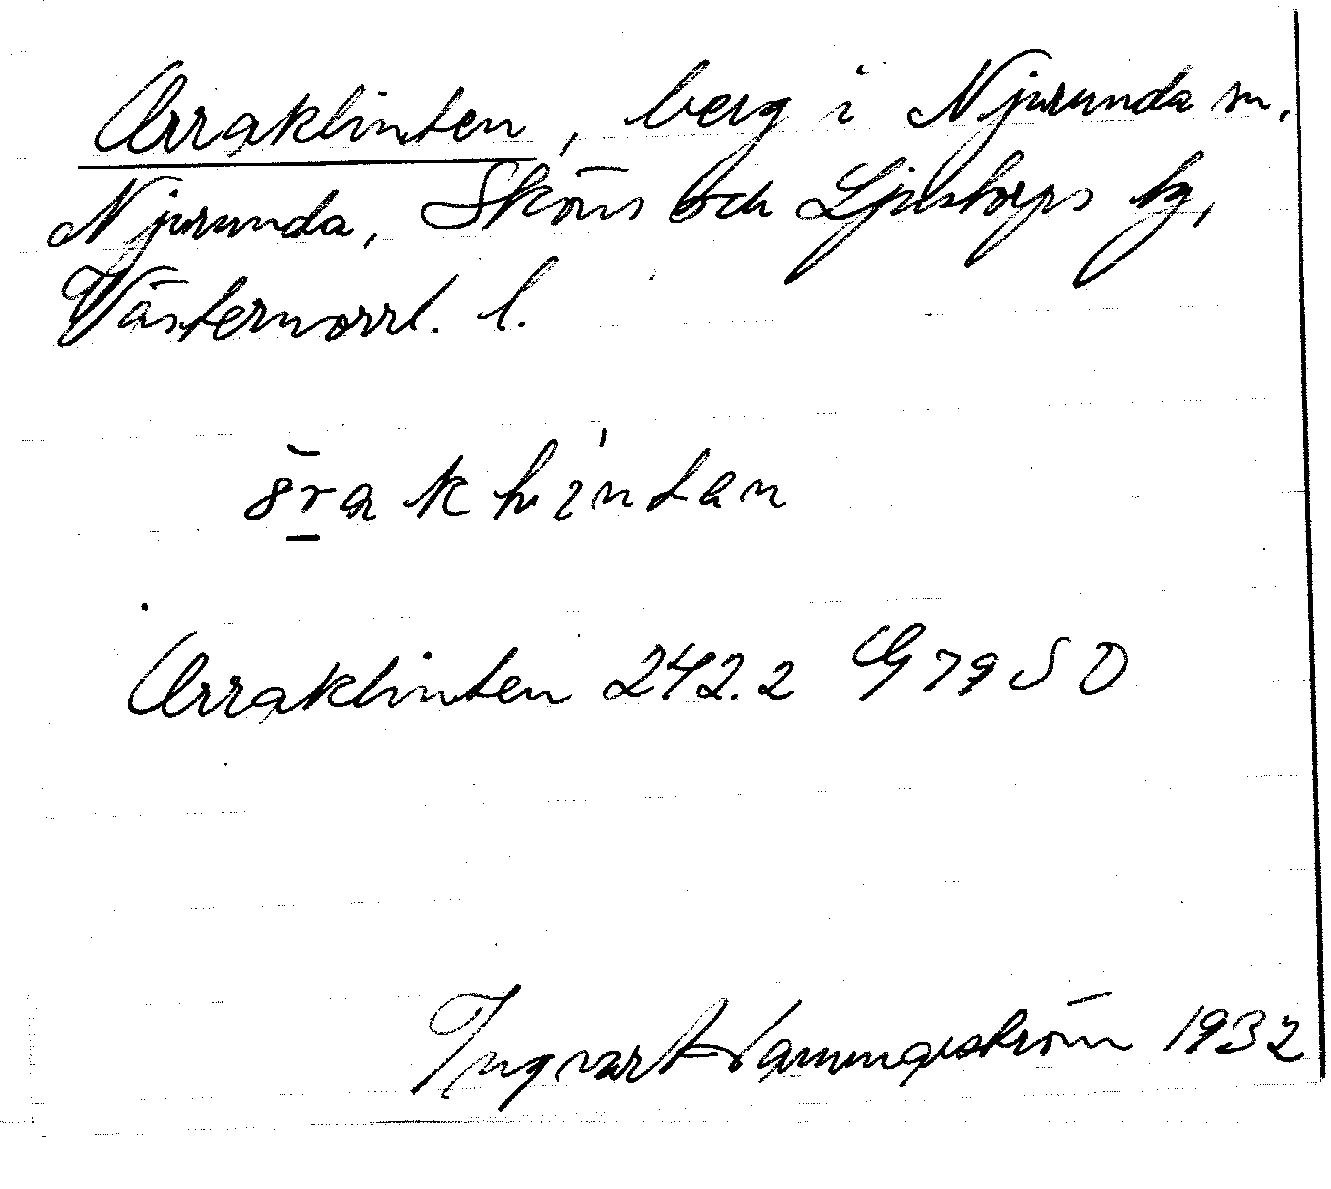 Orraklinten, berg i Njurunda sn.
Njurunda, Sköns och Ljustorps tg,
Västernorrl. l.
Orraklinten 242.2 G79 SO
Ingvar Hammarström 1932